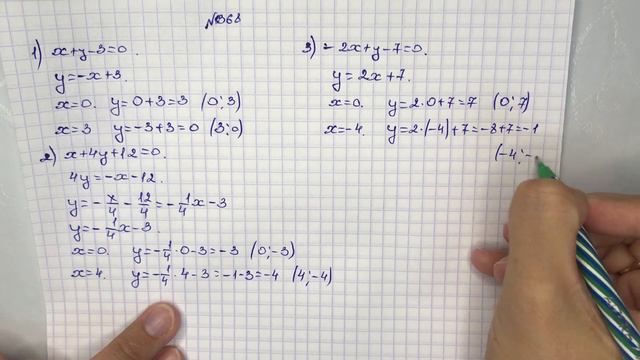 №368
1) x+y-3=0.
y=-x+3.
x=0. y=0+3=3 (0;3)
x=3 y=-3+3=0 (3;0)
2) x+4y+12=0.
4y=-x-12.
y=-x/4-12/4=-1/4x-3
y=-1/4x-3.
x=0. y=-1/4·0-3=-3 (0;-3)
x=4. y=-1/4·4-3=-1-3=-4 (4;-4)
3) -2x+y-7=0.
y=2x+7.
x=0. y=2·0+7=7 (0;7)
x=-4. y=2·(-4)+7=-8+7=-1
(-4;-